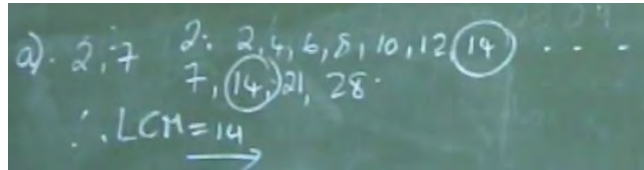 a). 2,7 2: 2,4,6,8,10,12,14 . . .
7, 14, 21, 28.
∴ LCM = 14